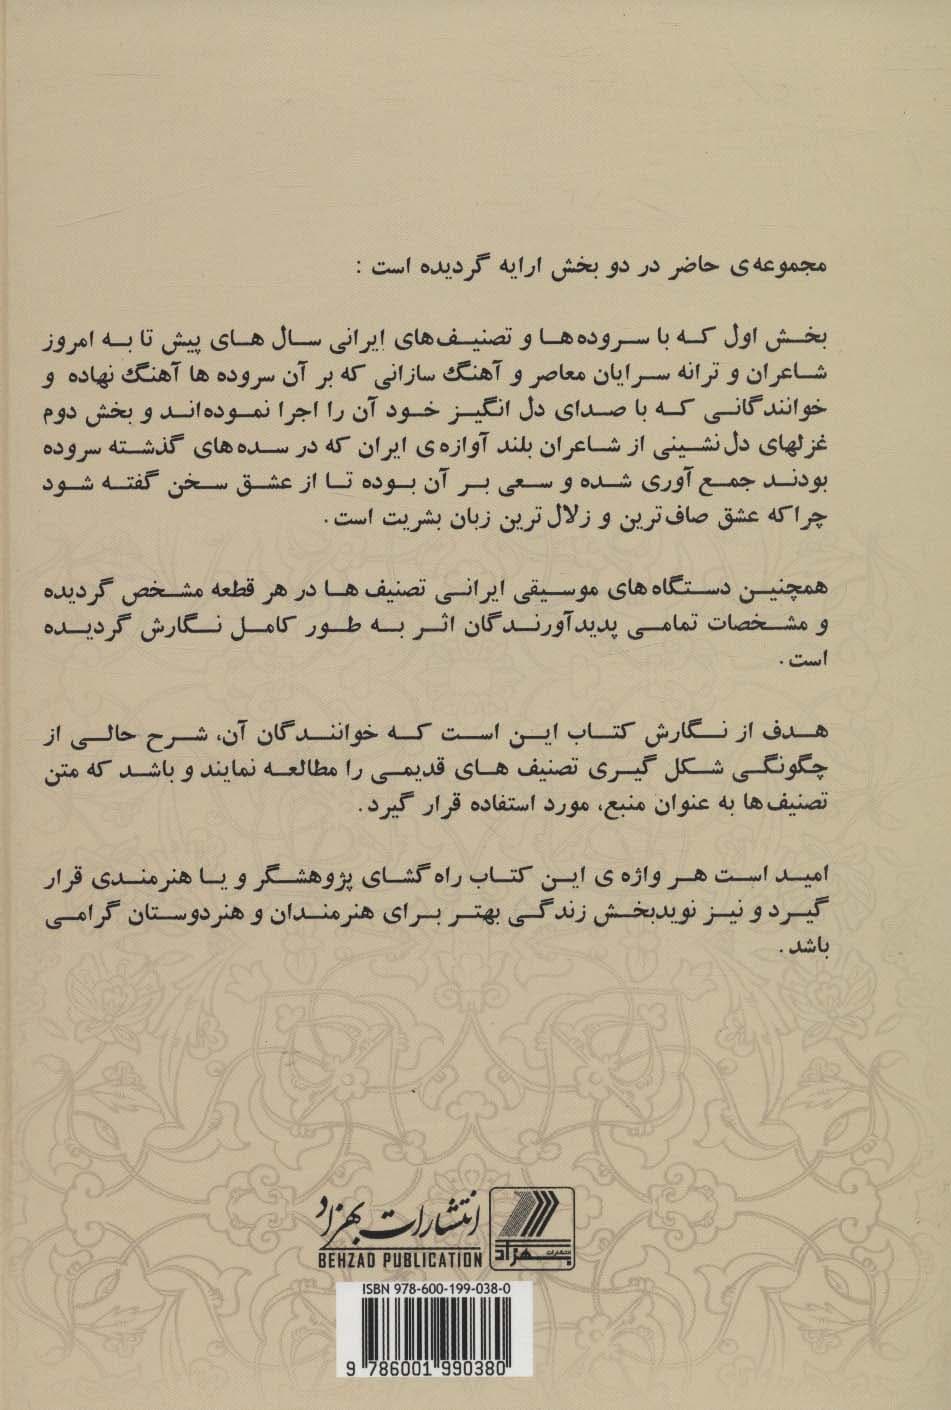 مجموعه‌ی حاضر در دو بخش ارایه گردیده است :
بخش اول که با سروده‌ها و تصنیف‌های ایرانی سال های پیش تا به امروز
شاعران و ترانه سرایان معاصر و آهنگ سازانی که بر آن سروده ها آهنگ نهاده و
خوانندگانی که با صدای دل انگیز خود آن را اجرا نموده‌اند و بخش دوم
غزلهای دل‌نشینی از شاعران بلند آوازه‌ی ایران که در سده‌های گذشته سروده
بودند جمع آوری شده و سعی بر آن بوده تا از عشق سخن گفته شود
چراکه عشق صاف‌ترین و زلال ترین زبان بشریت است.
همچنین دستگاه‌های موسیقی ایرانی تصنیف ها در هر قطعه مشخص گردیده
و مشخصات تمامی پدیدآورندگان اثر به طور کامل نگارش گردیده
است .
هدف از نگارش کتاب این است که خوانندگان آن، شرح حالی از
چگونگی شکل گیری تصنیف های قدیمی را مطالعه نمایند و باشد که متن
تصنیف‌ها به عنوان منبع، مورد استفاده قرار گیرد.
امید است هر واژه ی این کتاب راه گشای پژوهشگر و یا هنرمندی قرار
گیرد و نیز نویدبخش زندگی بهتر برای هنرمندان و هنردوستان گرامی
باشد .
انتشارات بهزاد
BEHZAD PUBLICATION
انتشارات بهزاد
ISBN 978-600-199-038-0
9 786001 990380